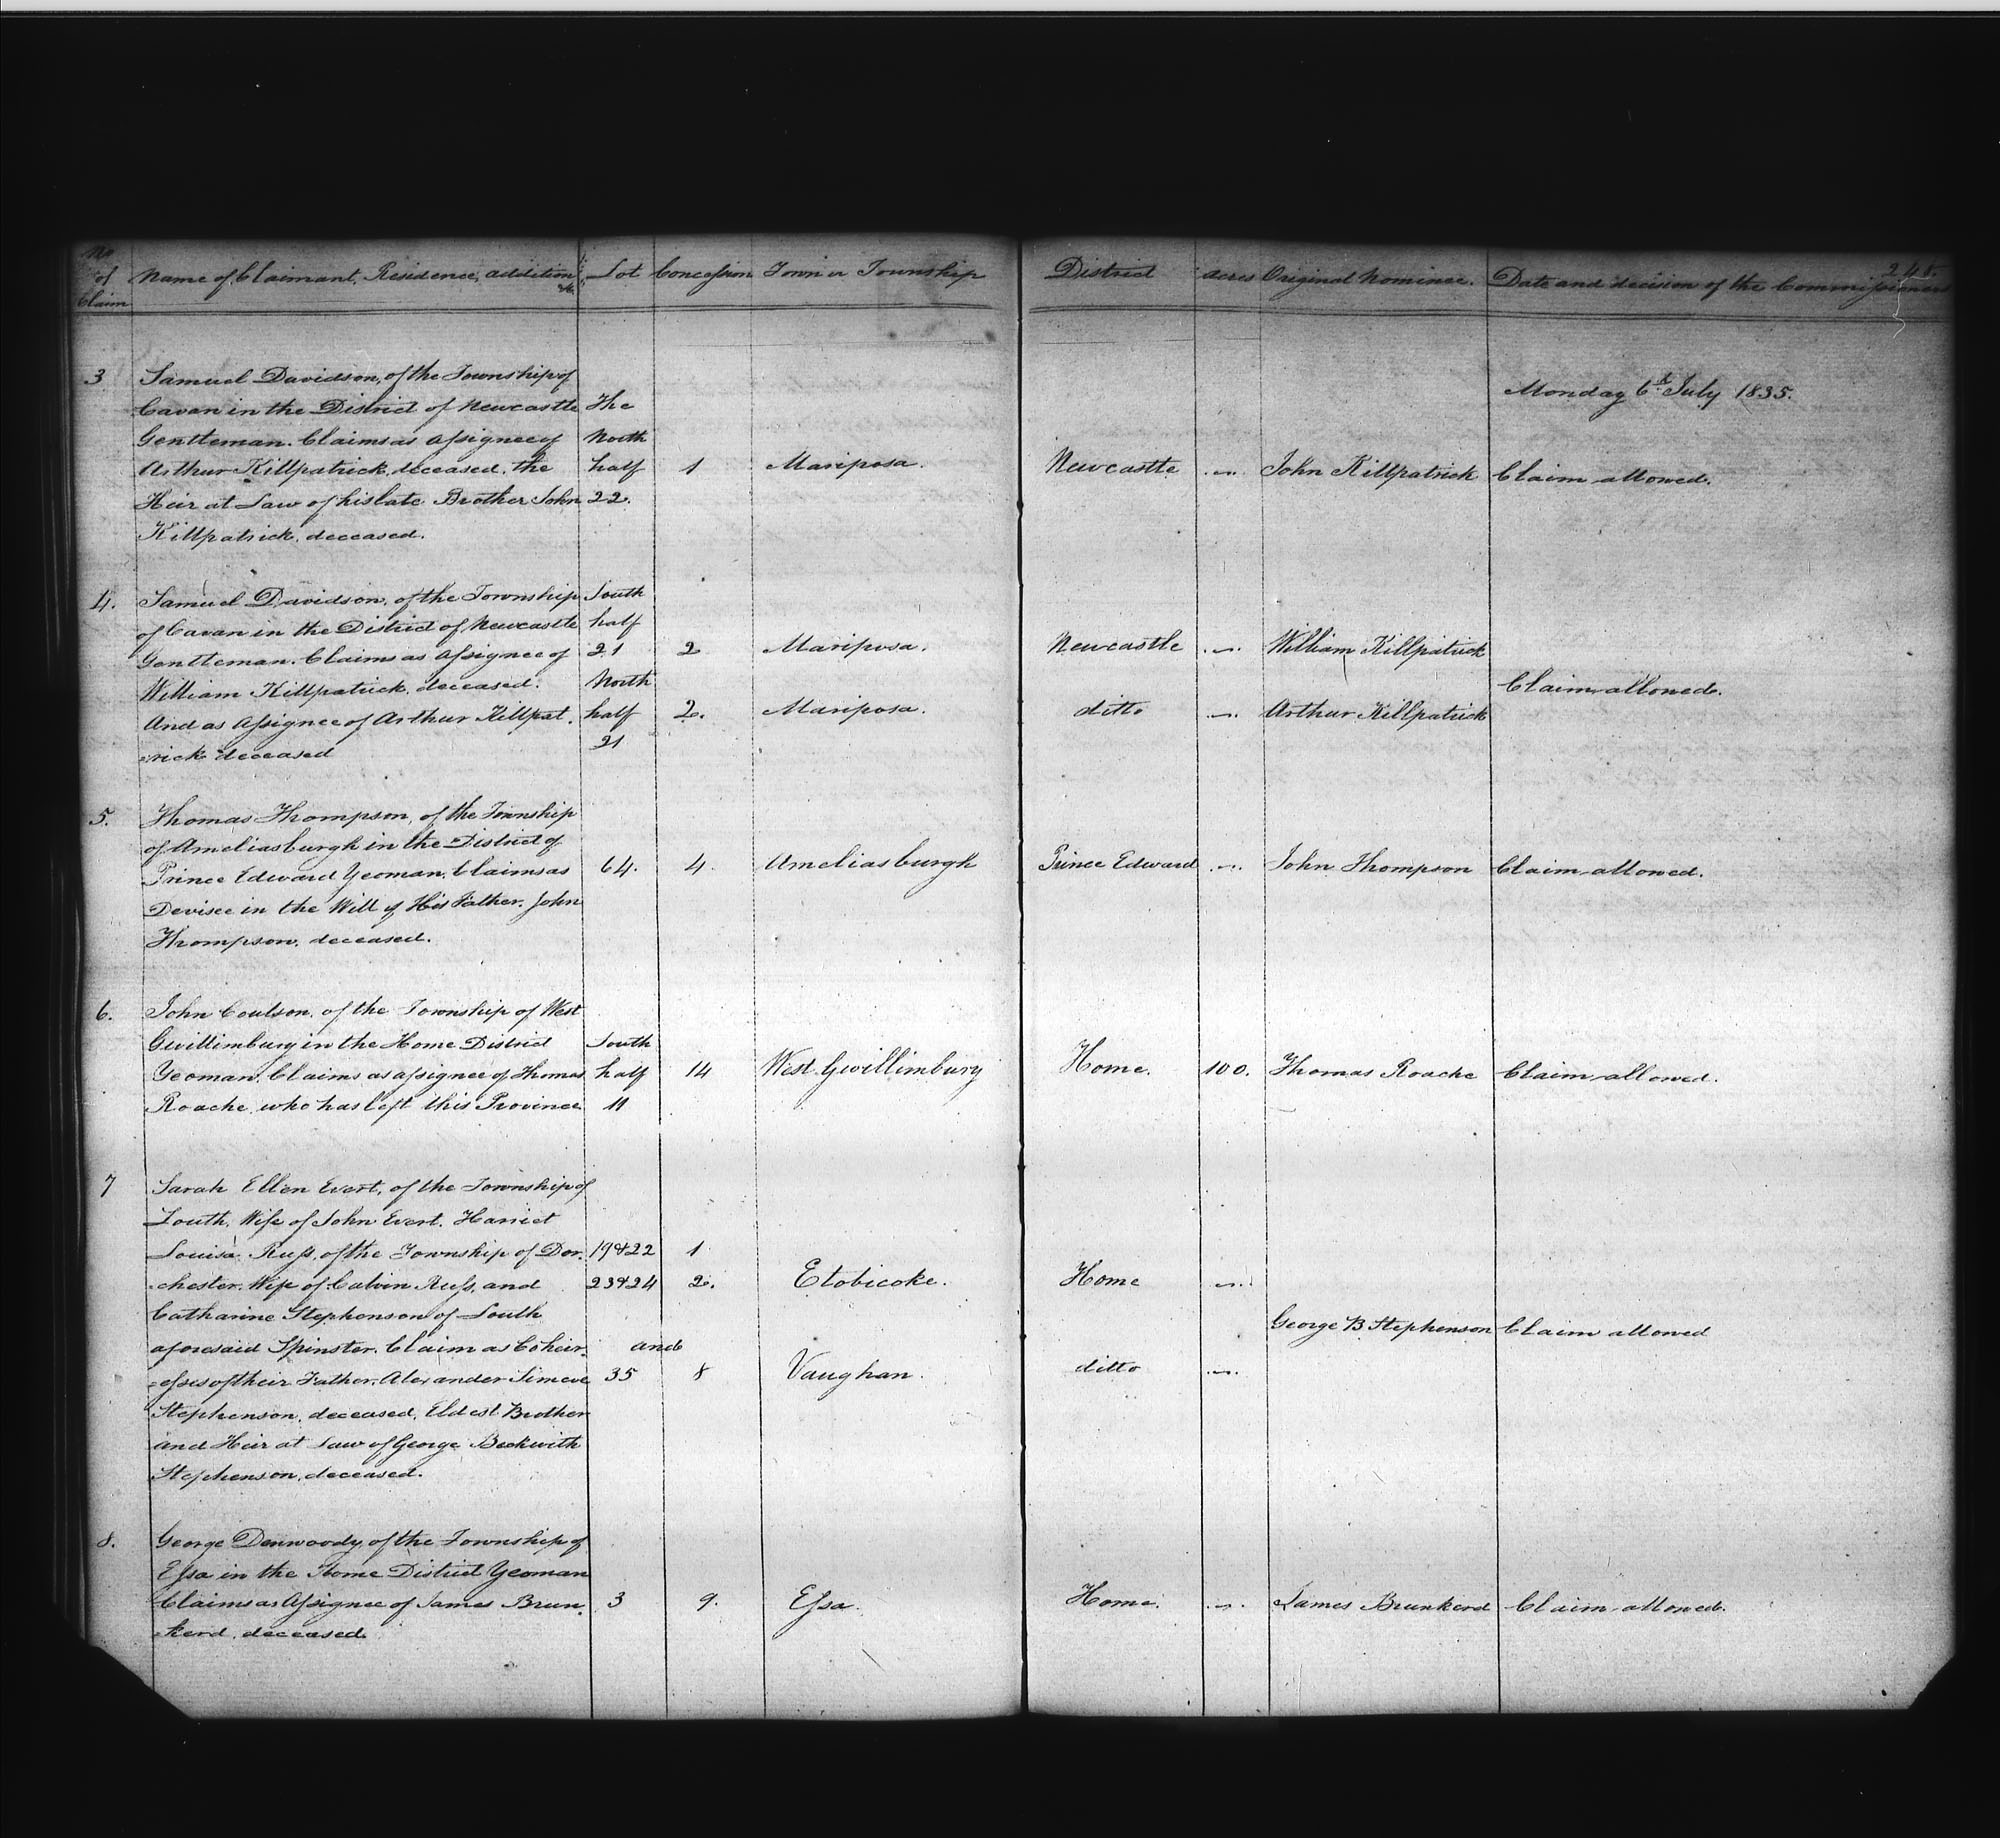 No of Claim Name of Claimant, Residence, addition &c. Lot Concession Town or Township District acres Original Nominee. Date and decision of the Commissioners
Monday 6th July 1835.
3 Samuel Davidson, of the Township of
Cavan in the District of Newcastle The
Gentleman. Claims as Assignee of North
Arthur Killpatrick, deceased, the half 1 Mariposa. Newcastle John Killpatrick Claim allowed.
Heir at Law of his late Brother John 22.
Killpatrick, deceased.
4. Samuel Davidson, of the Township South
of Cavan in the District of Newcastle half
Gentleman. Claims as Assignee of 21 2 Mariposa. Newcastle William Killpatrick
William Killpatrick, deceased. North Claim allowed.
And as Assignee of Arthur Killpat. half 2. Mariposa. ditto Arthur Killpatrick
=rick deceased 21
5. Thomas Thompson, of the Township
of Ameliasburgh in the District of
Prince Edward Yeoman, Claims as 64. 4. Ameliasburgh Prince Edward John Thompson Claim allowed.
Devisee in the Will of His Father. John
Thompson, deceased.
6. John Coulson, of the Township of West
Gwillimbury in the Home District South
Yeoman, Claims as assignee of Thomas half 14 West Gwillimbury Home. 100. Thomas Roache Claim allowed.
Roache, who has left this Province 11
7 Sarah Ellen Evert, of the Township of
Louth, Wife of John Evert. Harriet
Louisa Russ, of the Township of Dor. 19&22 1
=chester. Wife of Calvin Russ, and 23&24 2. Etobicoke. Home
Catharine Stephenson of Louth George B Stephenson Claim allowed
aforesaid Spinster. Claim as Coheir. and
=esses of their Father. Alexander Simeve 35 8 Vaughan. ditto
Stephenson, deceased, Eldest Brother
and Heir at Law of George Beckwith
Stephenson, deceased.
8. George Denwoody, of the Township of
Essa in the Home District Yeoman
Claims as Assignee of James Brun. 3 9. Essa. Home. James Brunkerd Claim allowed.
=kerd, deceased.